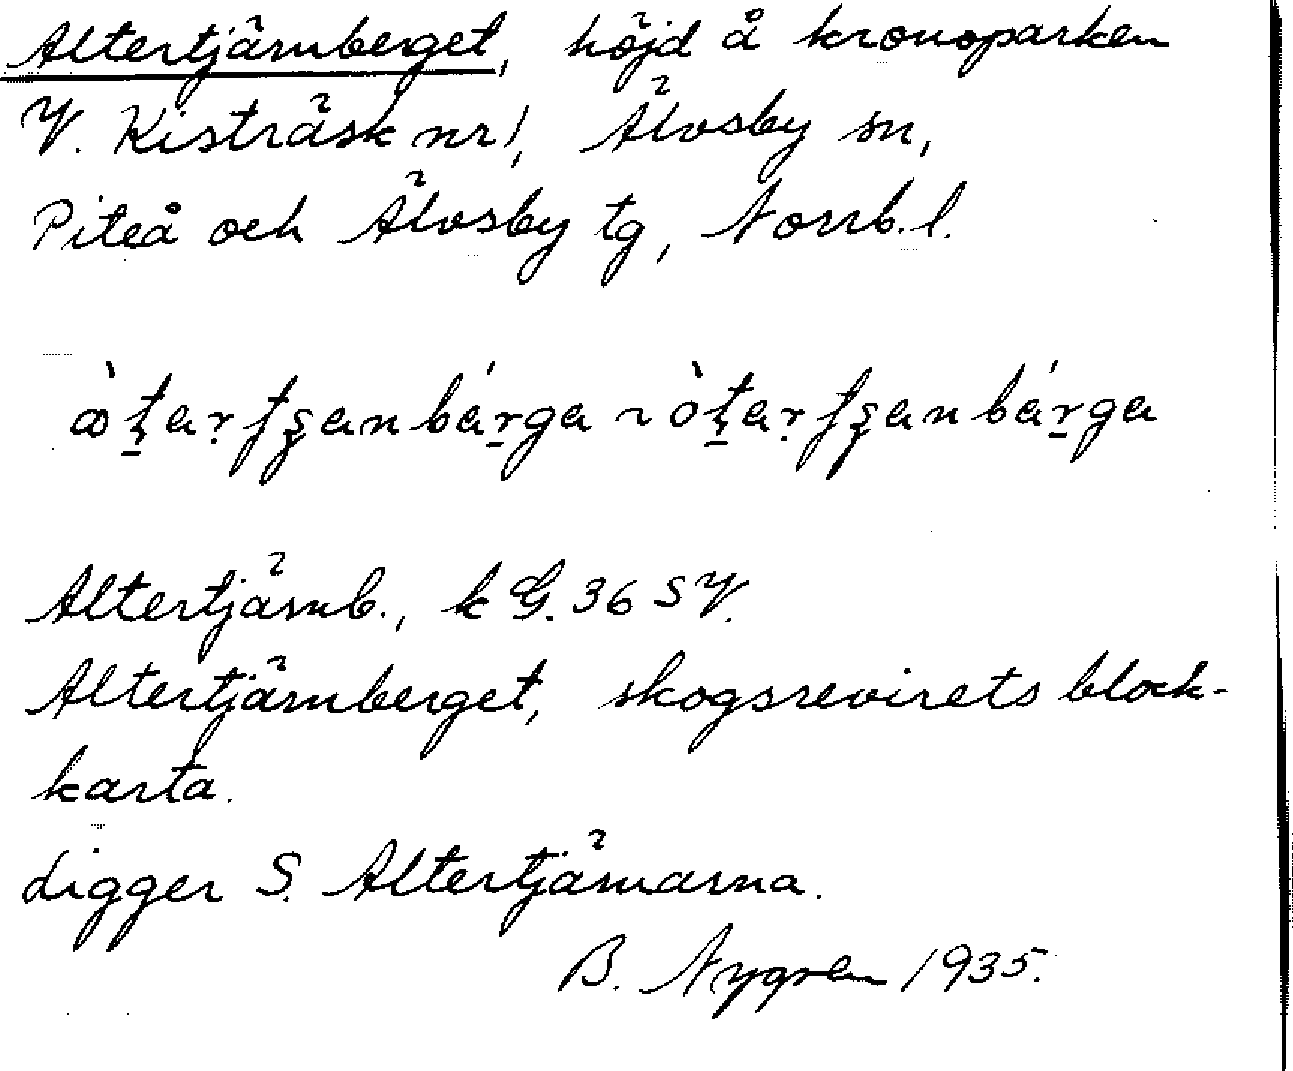 Altertjärnberget, höjd å kronoparken
V. Kisträsk nr 1, Älvsby sn,
Piteå och Älvsby tg, Norrb. l.
Altertjärnb., k G. 36 SV.
Altertjärnberget, skogsrevirets block-
karta.
Ligger S. Altertjärnarna.
B. Nygren 1935.